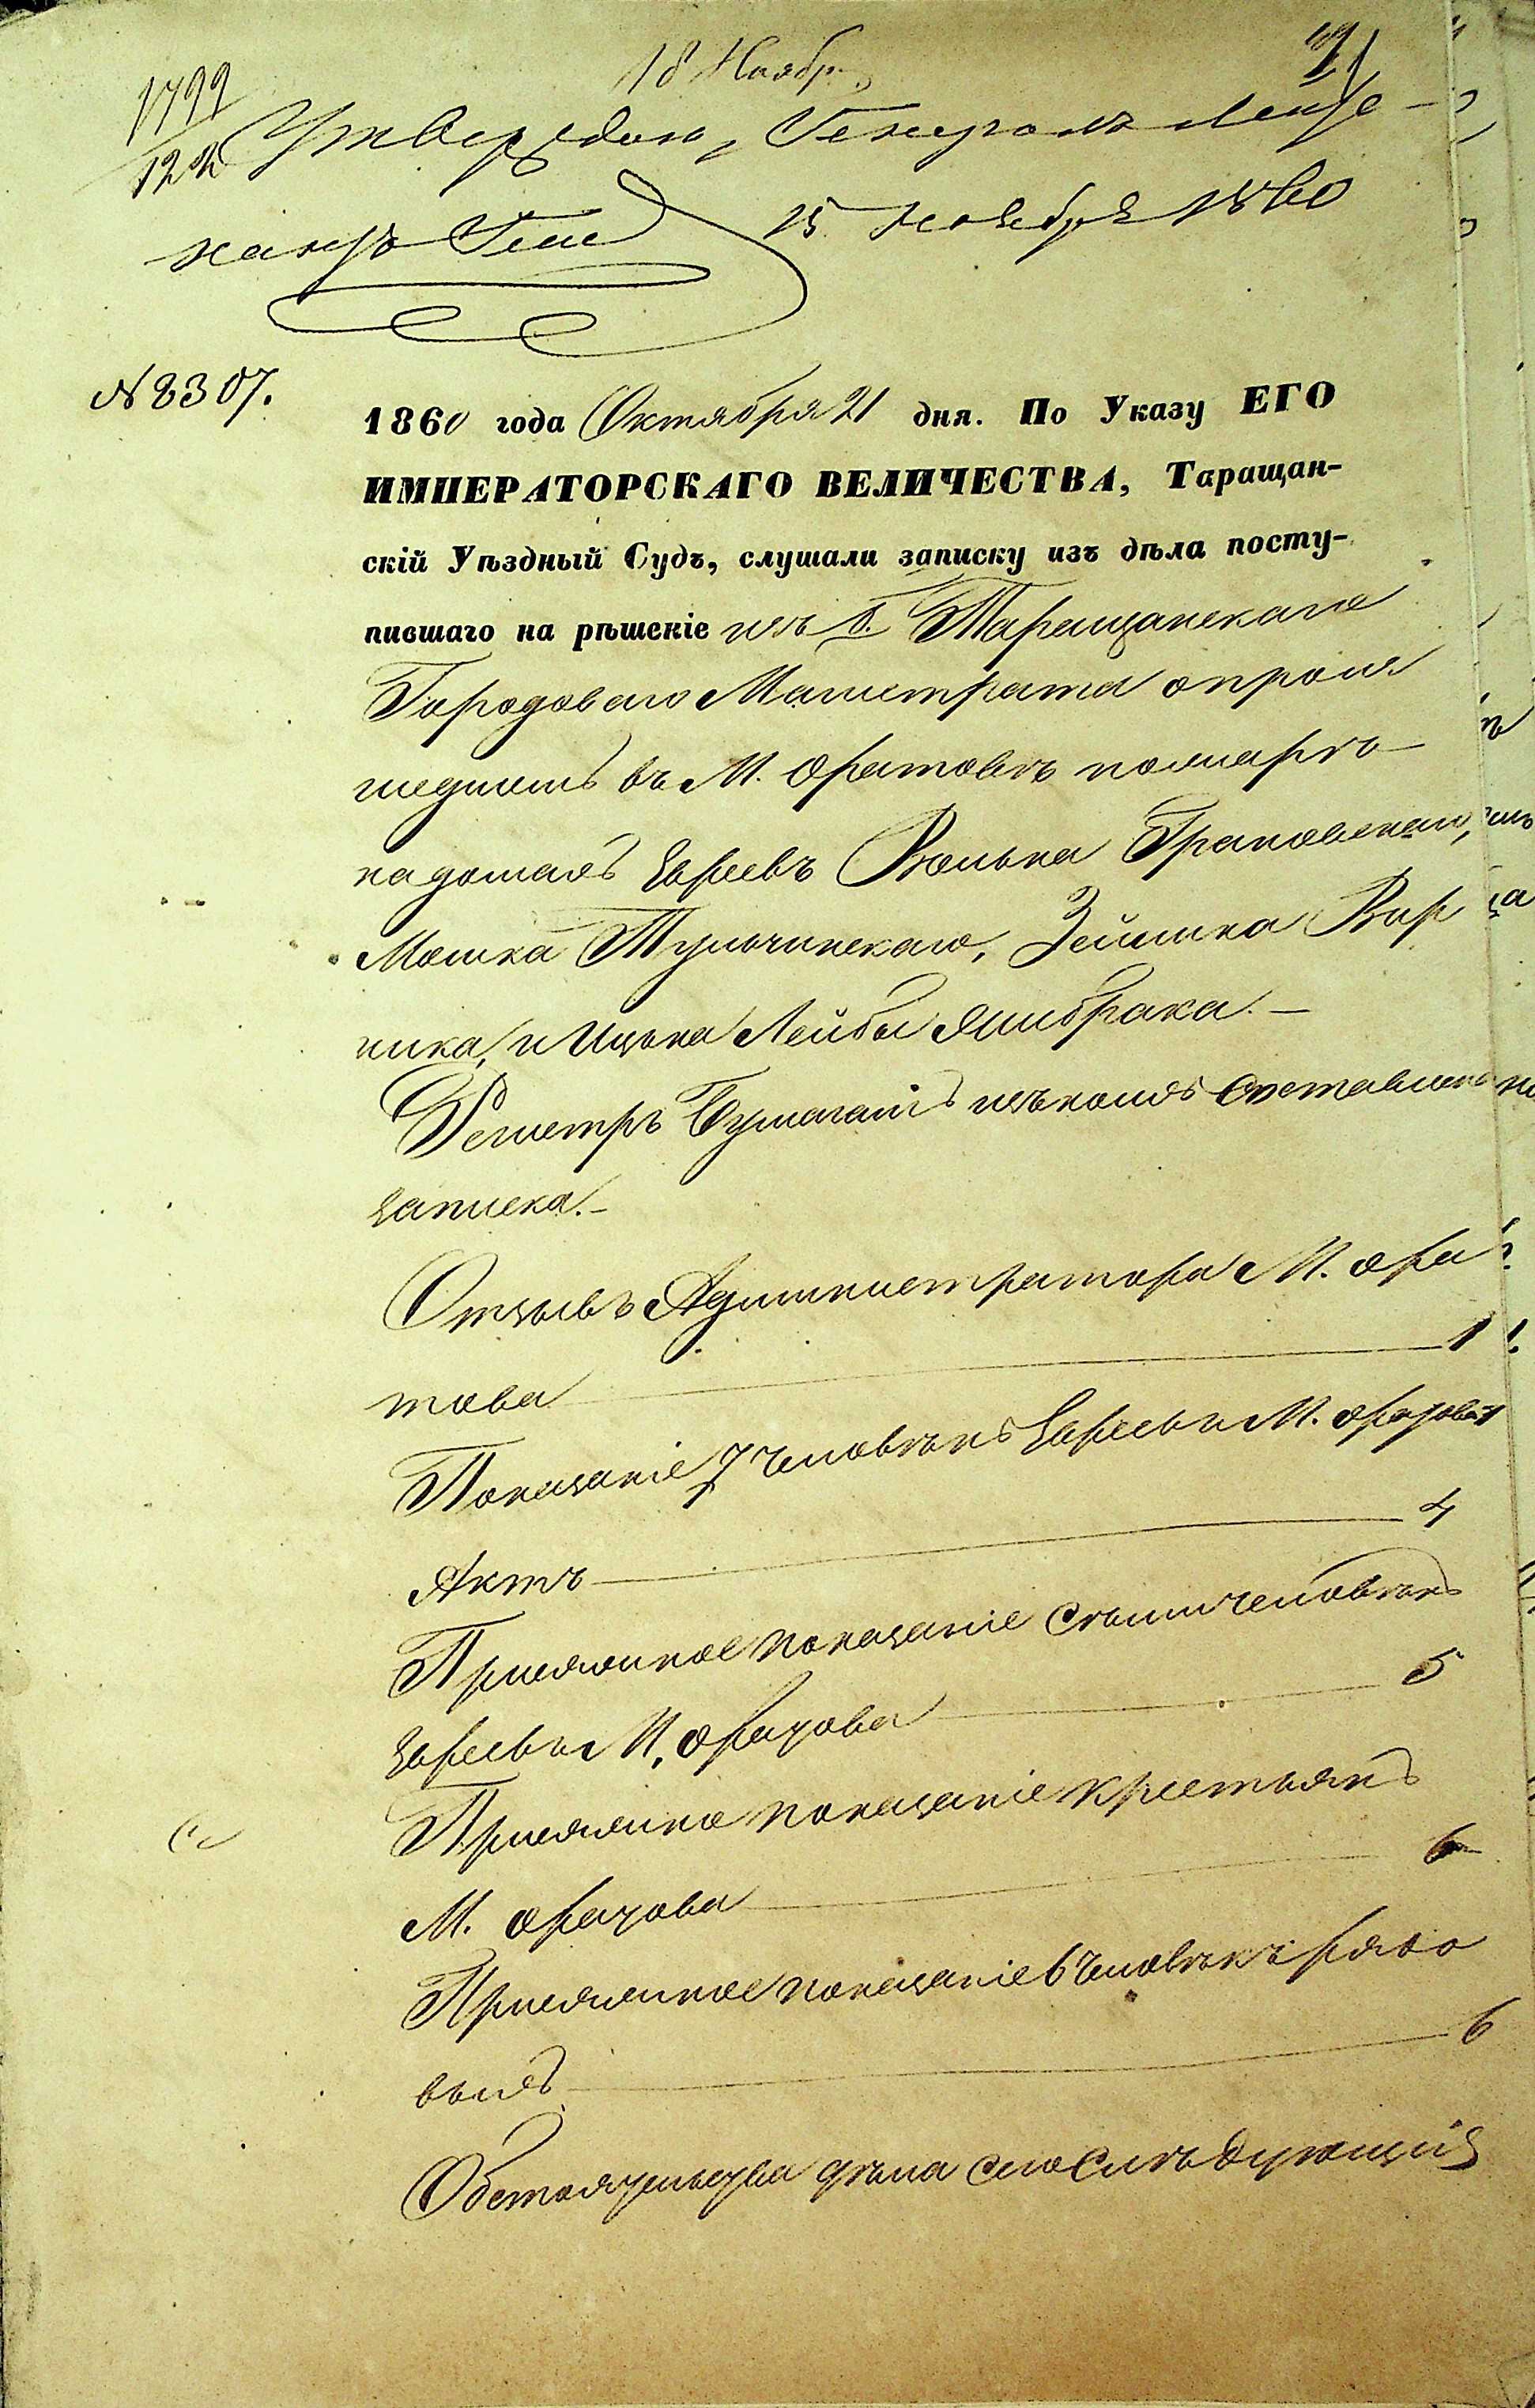 18 Ноябр.
1799
122 Утверждаю, Генералъ Лейте-
нантъ Гессе 15 Ноября 1860
№ 8307.
1860 года Октября 21 дня. По Указу ЕГО
ИМПЕРАТОРСКАГО ВЕЛИЧЕСТВА, Таращан-
скій Уѣздный Судъ, слушали записку изъ дѣла посту-
пившаго на рѣшеніе изъ б. Таращанскаго
Городоваго Магистрата о проис
шедшемъ въ М. Оратовѣ пожарѣ
на домахъ Евреевъ Волька Грановскаго,
Мошка Тульчинскаго, Зейлика Вар
ника, и Ицька Лейбы Ямбрака.—
Регистръ бумагамъ изъ коихъ составлена
записка.—
Отзывъ Администратора М. Ора
това 1
Показаніе 7 человѣкъ Евреевъ М. Оратова
Актъ 4
Присяжное показаніе семи человѣкъ
Евреевъ М. Оратова 5
Присяжно показаніе крестьянъ
М. Оратова 6
Присяжное показаніе 6 человѣкъ рядо
выхъ 6
Обстоятельства дѣла сего слѣдующія